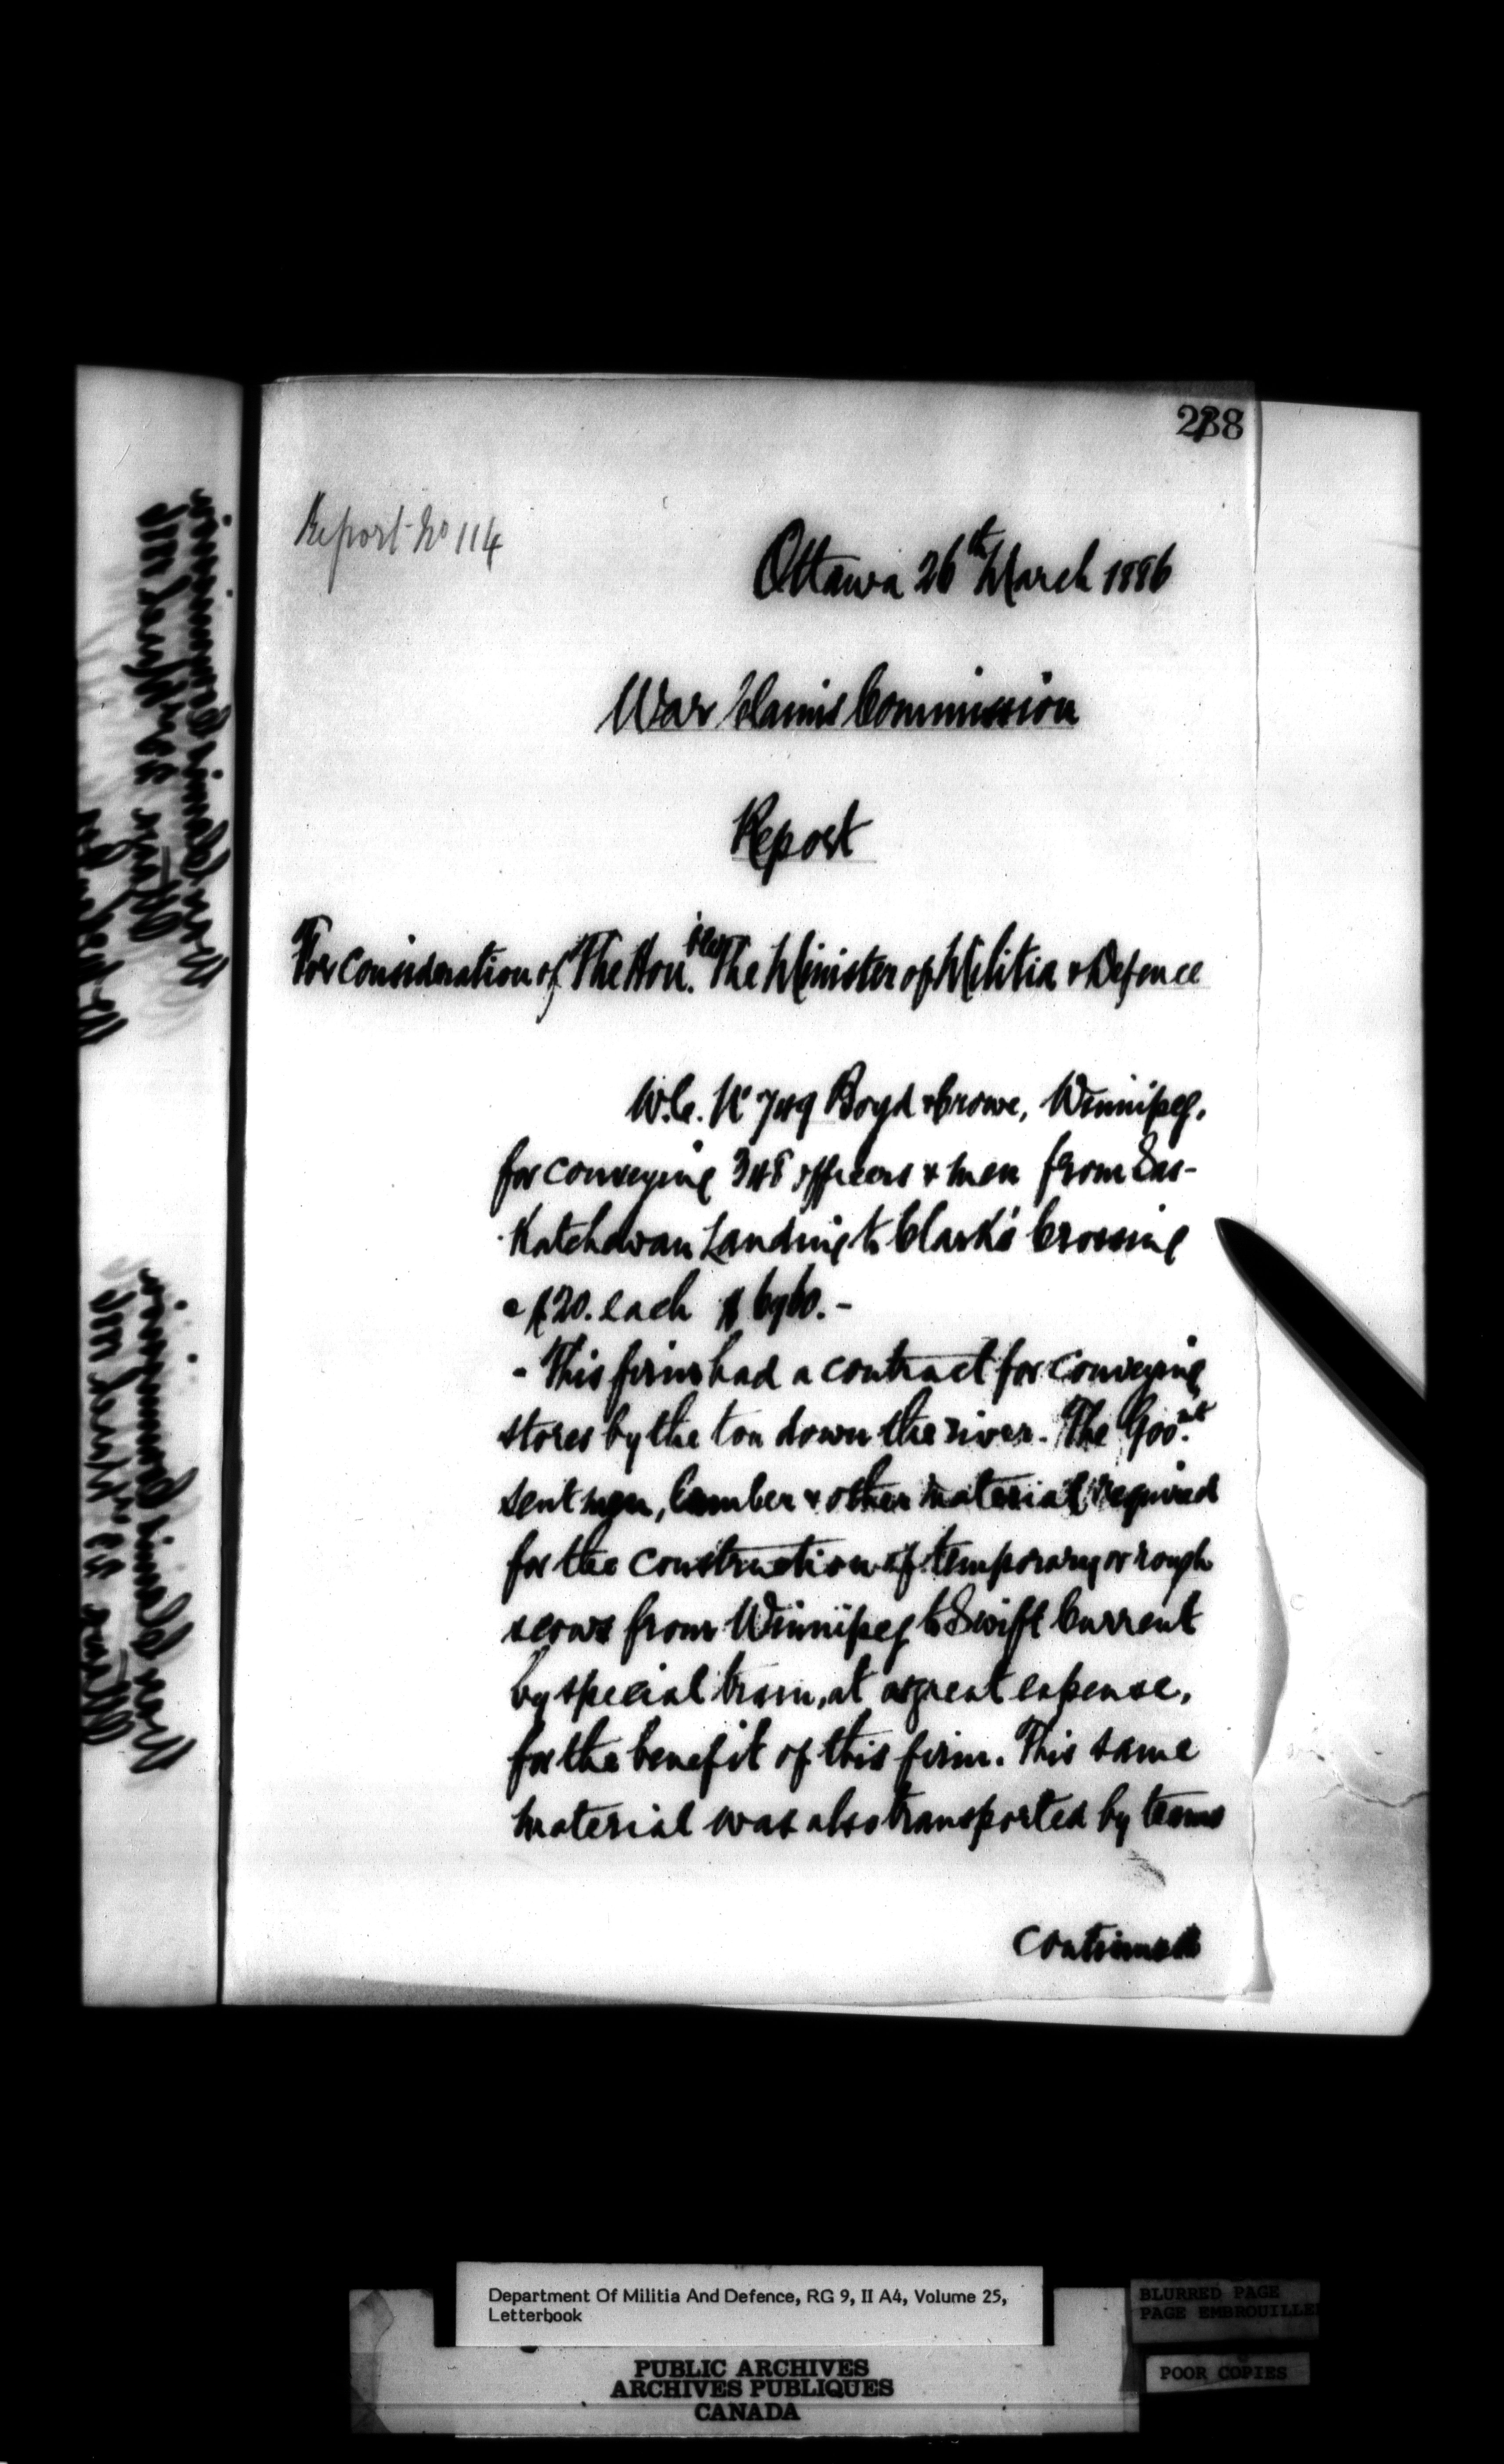 238
Report No 114
Ottawa 26th March 1886
War Claims Commission
Report
For consideration of The Hon.ble The Minister of Militia & Defence
W.C. No 749 Boyd & Crowe, Winnipeg,
for conveying 348 officers & men from Sas-
katchewan Landing to Clark's Crossing
@ $20. each $6960. -
- This firm had a contract for conveying
stores by the ton down the river. The Gov.nt
sent men, lumber & other material required
for the construction of temporary or rough
scows from Winnipeg to Swift Current
by special train, at a great expense,
for the benefit of this firm. This same
material was also transported by teams
Continued
Department Of Militia And Defence, RG 9, II A4, Volume 25,
Letterbook
BLURRED PAGE
PAGE EMBROUILLE
POOR COPIES
PUBLIC ARCHIVES
ARCHIVES PUBLIQUES
CANADA